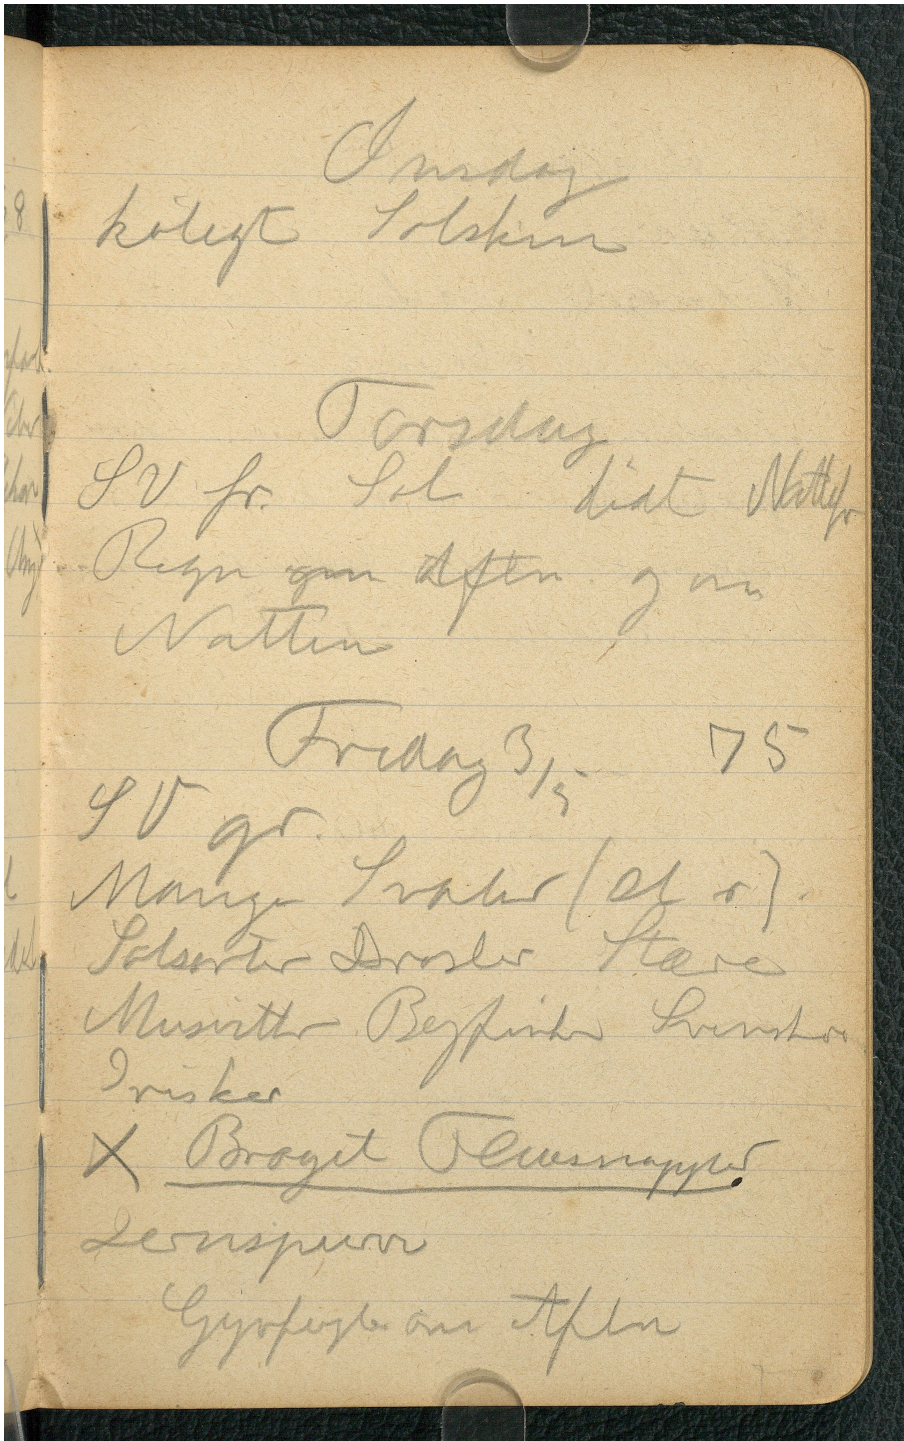 Onsdag
køligt Solskin
Torsdag
SV fr. Sol lidt Nattefr
Regn om Aften og om
Natten
Fredag 3/5 75
SV gr.
Mange Svaler (
Solsorter Drosler Stære
Musvitter Bogfinker Svenskere
Irisker
X Broget Fluesnapper
Jernspurv
om Aften